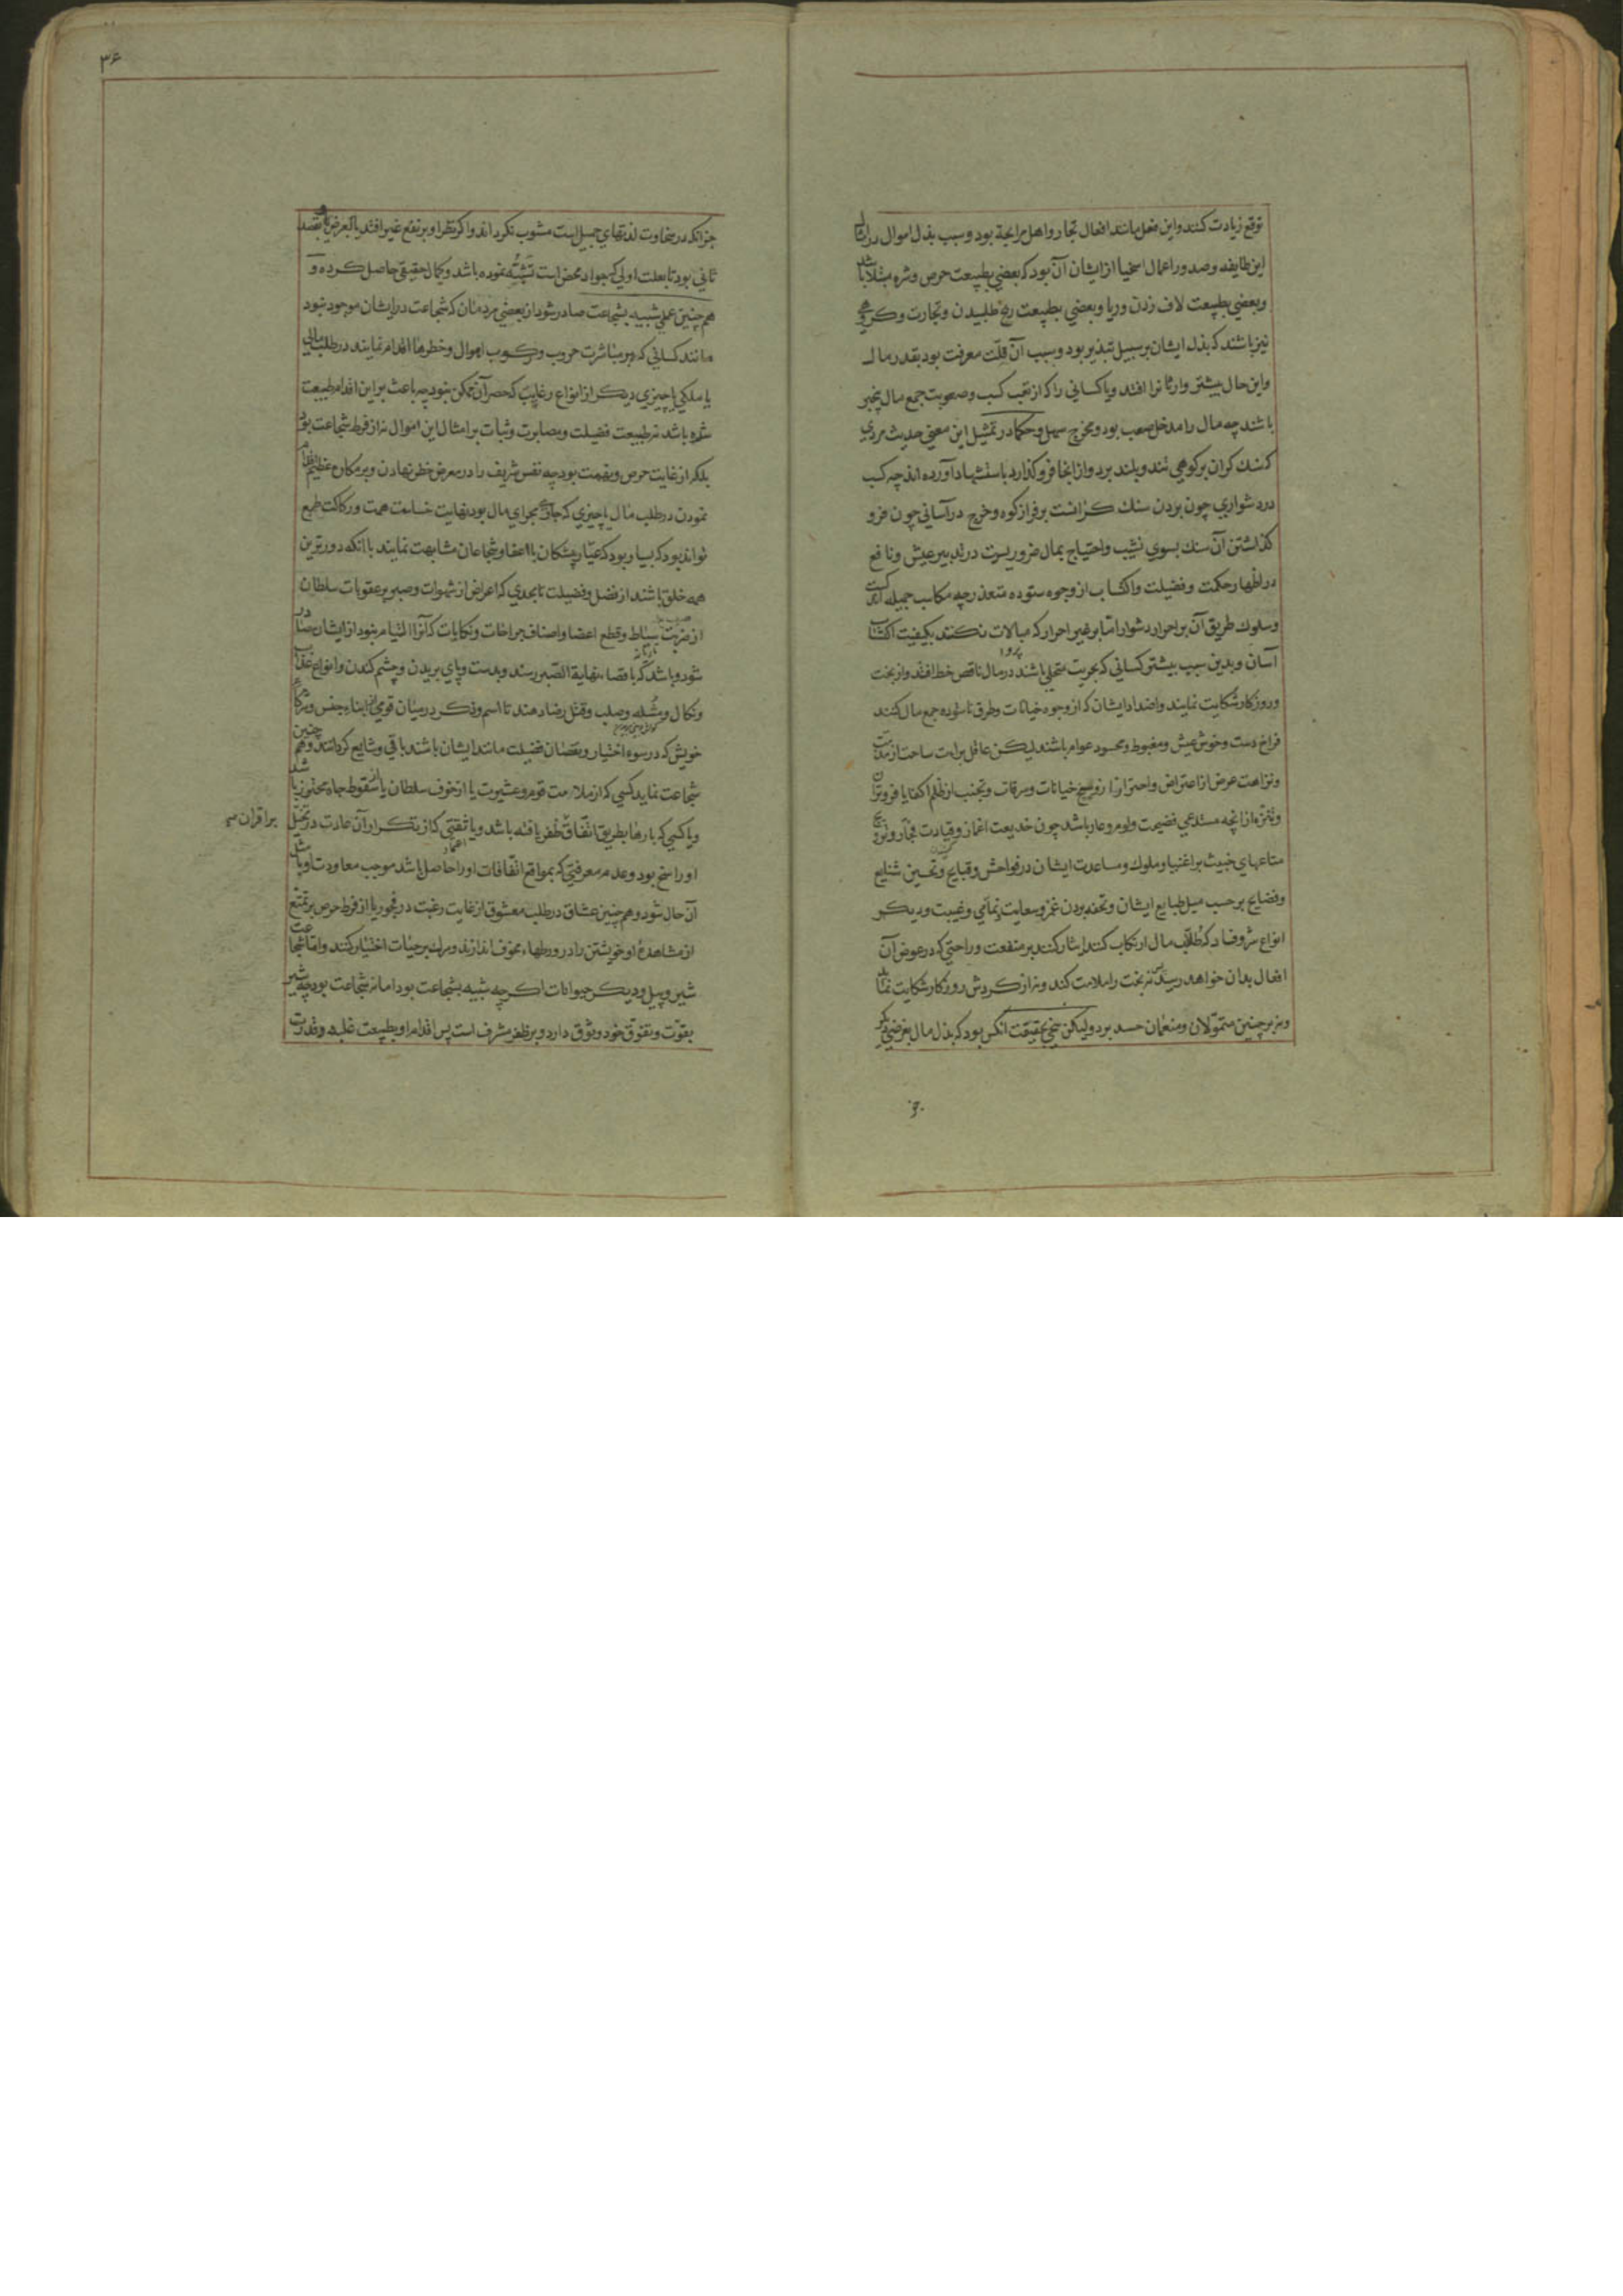 توقع زیادت کنند و این فعل مانند افعال تجار و اهل مرابحة بود و سبب بذل اموال در امثال
این طایفه و صدور اعمال اسخیا از ایشان آن بود که بعضی بطبیعت حرص و شره مبتلا باشند
و بعضی بطبیعت لاف زدن و ریا و بعضی بطبیعت ربح طلبیدن و تجارت و گروهی
نیز باشند که بذل ایشان بر سبیل تبذیر بود و سبب آن قلّت معرفت بود بقدر مال
و این حال بیشتر وارثانرا افتد و یا کسانی را که از تعب کسب و صعوبت جمع مال بیخبر
باشند چه مال را مدخل صعب بود و مخرج سهل و حکما در تمثیل این معنی حدیث مردی
که سنك کران بر کوهی تند و بلند برد و از انجا فرو کذارد باستشهاد آورده اند چه کسب
در دشواری چون بردن سنك کرانست بر فراز کوه و خرج در آسانی چون فرو
کذاشتن آن سنك بسوی نشیب و احتیاج بمال ضروریست در تدبیر عیش و نافع
در اظهار حکمت و فضیلت و اکتساب از وجوه ستوده متعذر چه مکاسب جمیله اندکست
و سلوك طریق آن بر احرار دشوار اما بر غیر احرار که مبالات نکنند بکیفیت اکتساب
پروا
آسان و بدین سبب بیشتر کسانی که بحریت متحلی باشند در مال ناقص حظ افتند و از بخت
و روزکار شکایت نمایند و اضداد ایشان که از وجوه خیانات و طرق ناستوده جمع مال کنند
فراخ دست و خوش عیش و مغبوط و محسود عوام باشند لیکن عاقل براءت ساحت از مذمت
و نزاهت عرض از اعتراض و احتراز از وسخ خیانات و سرقات و تجنب از ظلم اکفا یا فروتران
و تنزه از انچه مستدعی فضیحت و لوم و عار باشد چون خدیعت اغمار و قیادت فجار و ترویج
متاعهای خبیث بر اغنیا و ملوك و مساعدت ایشان در فواحش و قبایح و تحسین شنایع
و فضایح بر حسب میل طبایع ایشان و تحفه بردن غمز و سعایت و نمامی و غیبت و دیکر
انواع شر و فساد که طلّاب مال ارتکاب کنند ایثار کنند بر منفعت و راحتی که در عوض آن
افعال بدان خواهد رسید پس نه بخت را ملامت کند و نه از کردش روزکار شکایت نماید
و نه بر چنین متموّلان و منعمان حسد برد ولیکن سخی بحقیقت انکس بود که بذل مال بغرضی دیکر
جز
۳۶
جز آنکه در سخاوت لذتهای جمیل است مشوب نکرداند و اکر نظر او بر نفع غیر افتد بالعرض و بقصد
ثانی بود تا بعلت اولی که جواد محض است تَشَبُّه نموده باشد و کمال حقیقی حاصل کرده و
هم چنین عملی شبیه بشجاعت صادر شود از بعضی مردمان که شجاعت در ایشان موجود نبود
مانند کسانی که بر مباشرت حروب و رکوب اهوال و خطرها اقدام نمایند در طلب مالی
یا ملکی یا چیزی دیکر از انواع رغایب که حصر آن ممکن نبود چه باعث بر این اقدام طبیعت
شره باشد نه طبیعت فضیلت و مصابرت و ثبات بر امثال این اهوال نه از فرط شجاعت بود
بلکه از غایت حرص و نهمت بود چه نفس شریف را در معرض خطر نهادن و بر مکاره عظیم اقدام
نمودن در طلب مال یا چیزی که جاری مجرای مال بود نهایت خساست همت و رکاکت طبع
تواند بود که بسیار بود که عیّار پیشکان با اعفا و شجاعان مشابهت نمایند با آنکه دورترین
همه خلق باشند از فضل و فضیلت تا بحدی که اعراض از شهوات و صبر بر عقوبات سلطان
از ضربت سیاط و قطع اعضا و اصناف جراحات و نکایات که آنرا التیام نبود از ایشان صادر
شود و باشد که باقصاء نهایة الصّبر رسند و بدست و پای بریدن و چشم کندن و انواع عذاب
و نکال و مُثله و صلب و قتل رضا دهند تا اسم و ذکر در میان قومی از ابناء جنس و شرکاء
خویش که در سوء اختیار و نقصان فضیلت مانند ایشان باشند باقی و شایع کردانند و هم چنین
شجاعت نماید کسی که از ملامت قوم و عشیرت یا از خوف سلطان یا از سقوط جاه محترز باشد
و یا کسی که بارها بطریق اتّفاق ظفر یافته باشد و یا ثقتی که از تکرار آن عادت در تخیّل
بر اقران
او راسخ بود و عدم معرفتی که بمواقع اتّفاقات او را حاصل باشد موجب معاودت او بامثال
آن حال شود و هم چنین عشاق در طلب معشوق از غایت رغبت در فجور یا از فرط حرص بر تمتع
از مشاهدهٔ او خویشتن را در ورطهاء مخوف اندازند و مرك بر حیات اختیار کنند و اما شجاعت
شیر و پیل و دیکر حیوانات اکرچه شبیه بشجاعت بود اما نه شجاعت بود چه شیر
بقوّت و تفوّق خود وثوق دارد و بر ظفر مشرف است پس اقدام او بطبیعت غلبه و قدرت